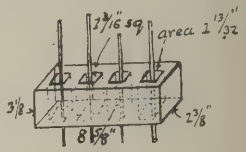 1 3/16" sq
area 1 13/32"
3 1/8
2 3/8"
8 5/8"